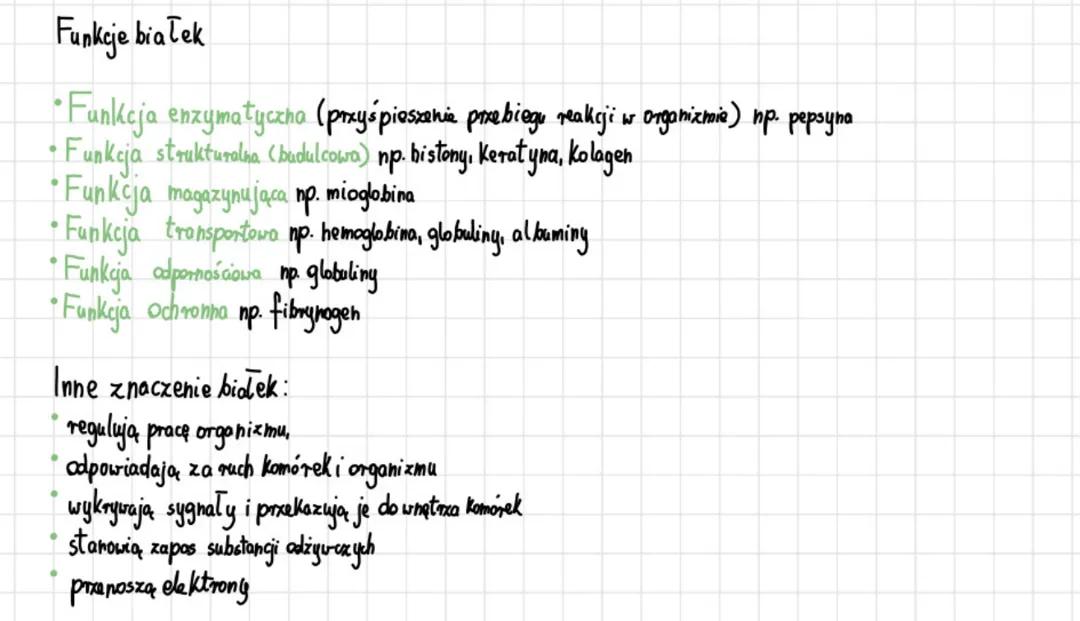 Funkcje białek
• Funkcja enzymatyczna (przyśpieszenie przebiegu reakcji w organizmie) np. pepsyna
• Funkcja strukturalna (budulcowa) np. histony, keratyna, kolagen
• Funkcja magazynująca np. mioglobina
• Funkcja transportowa np. hemoglobina, globuliny, albuminy
• Funkcja odpornościowa np. globuliny
• Funkcja ochronna np. fibrynogen
Inne znaczenie białek:
• regulują pracę organizmu,
• odpowiadają za ruch komórek i organizmu
• wykrywają sygnały i przekazują je do wnętrza komórek
• stanowią zapas substancji odżywczych
• przenoszą elektrony